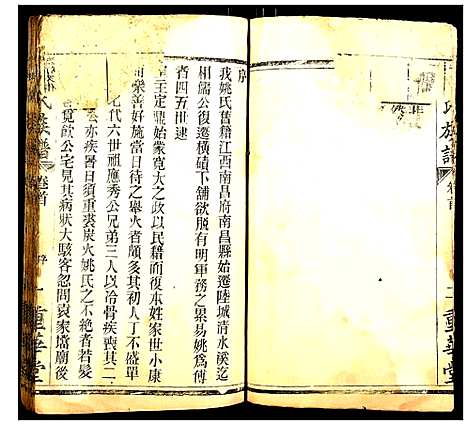 序
我姚氏舊籍江西南昌府南昌縣始遷陸城清水溪迄
相儒公復遷橫磧下舖欲脫有明軍務之累易姚爲傅
者四五世逮
王定鼎始蒙寬大之政以民籍而復本姓家世小康
而樂善好施當日待之舉火者頗多其初人丁不盛單
七代六世祖應秀公兄弟三人以冷骨疾喪其二
亦疾篤日須重裘炭火姚氏之不絶者若髮
飲公宅見其病狀大駭客忽問袁家壋廟後
氏族譜
卷首
序
一
重華堂
氏族譜
卷首
二
重華堂